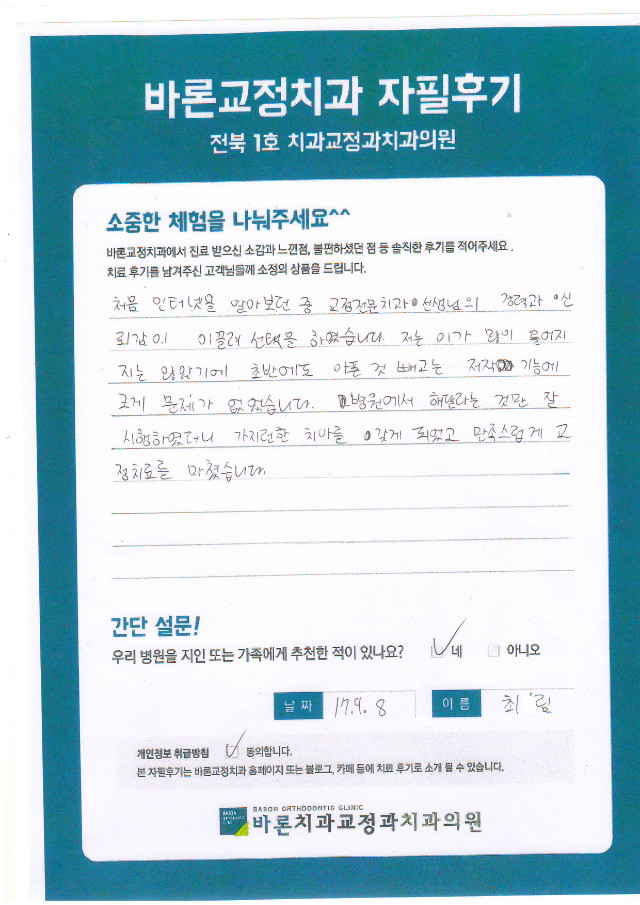 바론교정치과 자필후기
전북 1호 치과교정과치과의원
소중한 체험을 나눠주세요^^
바론교정치과에서 진료 받으신 소감과 느낀점, 불편하셨던 점 등 솔직한 후기를 적어주세요.
치료 후기를 남겨주신 고객님들께 소정의 상품을 드립니다.
처음 인터넷을 알아보던 중 교정전문치과 선생님의 경력과 신
뢰감에 이끌려 선택을 하였습니다. 저는 이가 많이 틀어지
지는 않았기에 초반에도 아픈 것 빼고는 저작 기능에
크게 문제가 없었습니다. 병원에서 해달라는 것만 잘
시행하였더니 가지런한 치아를 갖게 되었고 만족스럽게 교
정치료를 마쳤습니다.
간단 설문!
우리 병원을 지인 또는 가족에게 추천한 적이 있나요? 네 아니오
날 짜 17.9.8 이 름 최 림
개인정보 취급방침 동의합니다.
본 자필후기는 바론교정치과 홈페이지 또는 블로그, 카페 등에 치료 후기로 소개 될 수 있습니다.
BARON ORTHODONTIC CLINIC
바론치과교정과치과의원